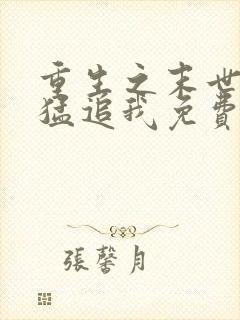 重生之末世
猛追我免費
張馨月